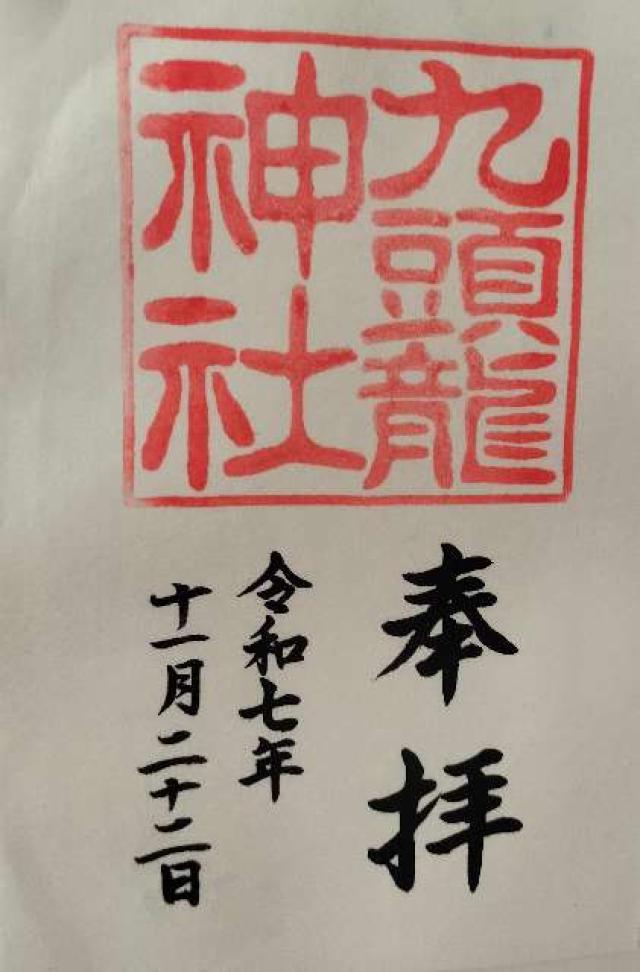 九頭龍
神社
奉拝
令和七年
十一月二十二日